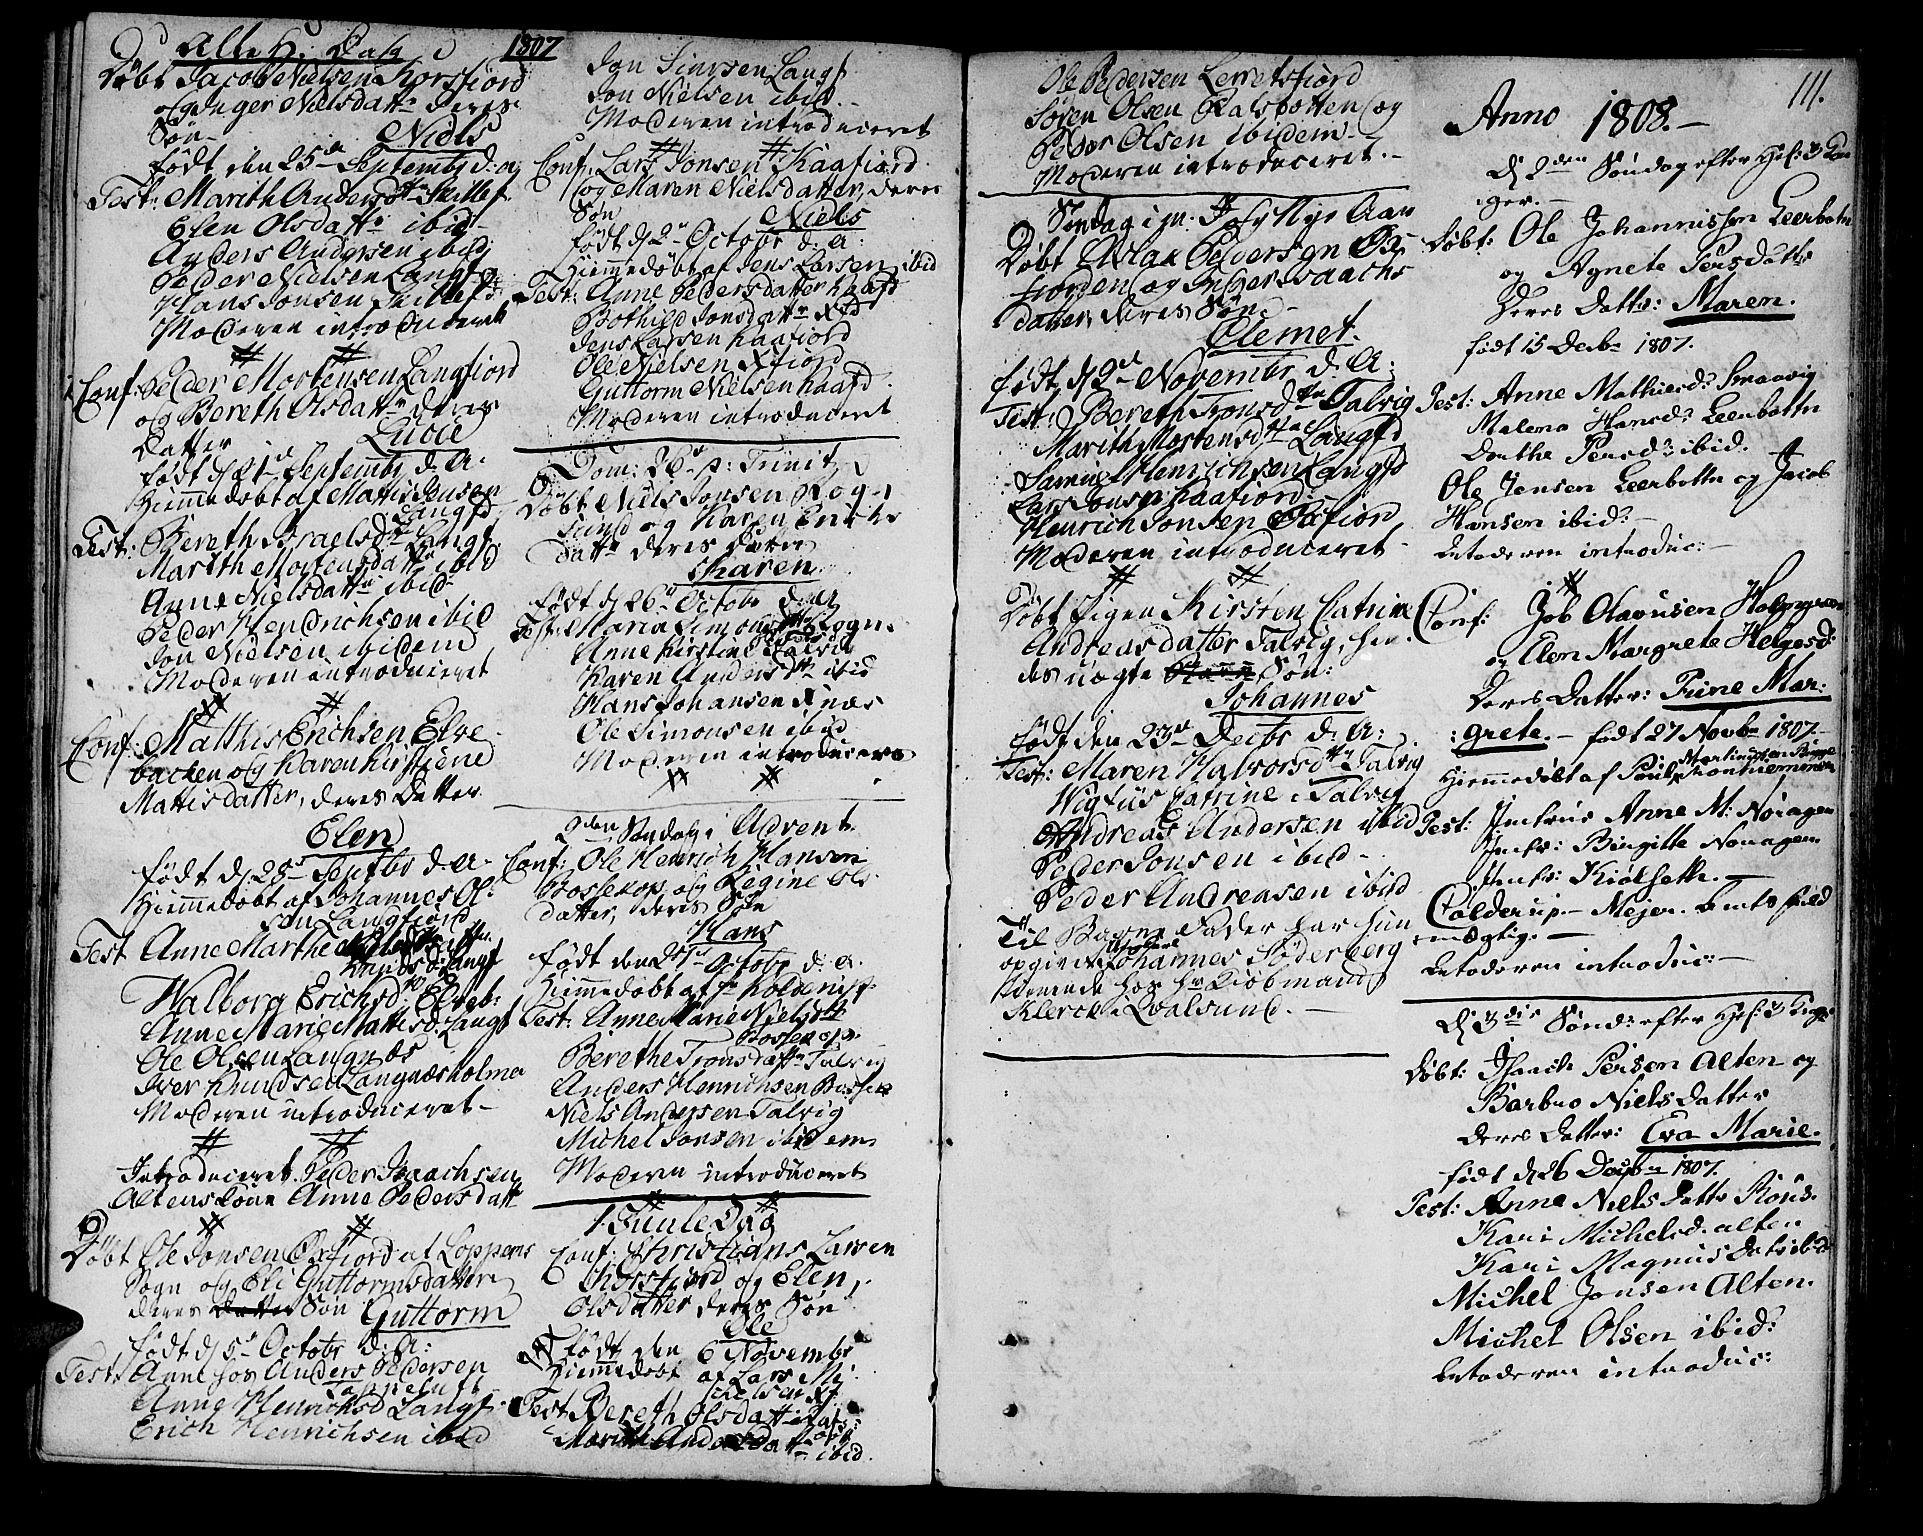 Alle H. Dag
1807
Døbt Jacob Nielsen Korsfiord
og Inger Nielsdattr deres
Søn
Niels
født den 25de Septembr d: a:
Test: Marith Andersdttr
Elen Olsdattr ibid
Anders Andersen ibid
Peder Nielsen Langf
Hans Jonsen
Moderen introduceret
Conf: Peder Mortensen Langfiord
og Bereth Olsdattr deres
Datter
Lucie
født d 21d Septembr d. A.
Hiemmedøbt af Mattis Jonsen
Langfd
Test: Bereth Israelsdttr Langf
Marith Mortensdattr ibid
Anne Nielsdattr ibid
Peder Hendrichsen ibid
Jon Nielsen ibidem
Moderen introduceret
Conf: Matthis Erichsen Elve-
backen og Karen Kirstiene
Mattisdatter, deres Datter
Elen
født d 25d Septbr d. A.
Hiemmedøbt af Johannes Ol-
sen Langfiord
Test Anne Marthe
Langf
Walborg Erichsd: Elveb:
Anne Marie Mattisd: Langf
Ole Olsen Langnæs
Iver Knudsen Langnæsholmen
Moderen introduceret
Introduceret Peder Isaachsen
Altens kone Anne Pedersdatt
Døbt Ole Jonsen Øxfiord at Loppens
Sogn og Eli Guttormsdatter
deres Datter Søn Guttorm
født d 5d Octobr d: A:
Test: Anne hos Anders Pedersen
Anne Henrichsd Langf
Erich Henrichsen ibid
Jon Siursen Langf
Jon Nielsen ibid
Moderen introduceret
Conf: Lars Jonsen Kaafiord
og Maren Nielsdatter, deres
Søn
Niels
født d 2d Octobr d. A:
Hiemmedøbt af Jens Larsen ibid
Test: Anne Pedersdatter Kaafd
Bothild Jonsdattr Kfd
Jens Larsen Kaafiord
Ole Nielsen Kfiord
Guttorm Nielsen Kaafd
Moderen introduceret
Dom: 26d p: Trinit
Døbt Niels Jonsen Rogn-
sund og Karen Erichs
dattr deres Datter
Karen
født d 26d Octobr d. A.
Test: Maria Simonsdttr Rogn.
Anne Kirstine Talvig
Karen Andersdttr ibid
Hans Johansen Knæs
Ole Simonsen ibid
Moderen introduceret
2den Søndag i Advent
Conf: Ole Henrich Hansen
Bossekop, og Regine Ols-
datter, deres Søn
Hans
født den 21d Octobr d. A.
Hiemmedøbt af Hr
Test: Anne Marie Nielsdtt
Bossekop
Berethe Tronsdattr Talvig
Anders Henrichsen Bossek
Niels Andersen Talvig
Michel Jonsen ibidem
Moderen introduceret
1. Juule Dag
Conf: Christians Larsen
Korsfiord og Elen
Olsdatter deres Søn
Ole
født den 6 Novembr
Hiemmedøbt af Lars Mi-
chelsen Kf
Test Bereth Olsdatt
Marith Andersdattr
ibid.
Ole Pedersen Lerretsfiord
Søren Olsen Ralsbotten og
Peder Olsen ibidem
Moderen introduceret
Søndag im. Jul Nye Aar
Døbt Aslak Pedersen Øx-
fiorden og Inger Isaachs
datter, deres Søn
Clemet.
født d 2d Novembr d. A:
Test: Bereth Tronsdttr Talvig
Marith Mortensdtter Langfd
Samuel Henrichsen Langfd
Lars Jonsen Kaafiord
Henrich Jonsen
Moderen introduceret
Døbt Pigen Kirsten Catrine
Andreasdatter Talvig, hen-
des uægte Søn:
Johannes
født den 23d Decbr d. A:
Test: Maren Halvorsdttr Talvig
Wigfus Catrine i Talvig
Andreas Andersen ibid
Peder Jonsen ibid
Peder Andreasen ibid
Til Barne Fader har hun
opgivet Johannes Söderberg
tienende hos Hr Kiøbmand
Klerck i Qvalsund.
111.
Anno 1808.
D 2den Søndag efter Hel: 3 Kon-
ger.
Døbt: Ole Johannisson Leerbotn
og Agnete Persdattr
Deres Dattr: Maren.
født 15 Decbr 1807.
Test: Anne Mathiesdr Smaavig
Malena Hansdr Leerbottn
Dorthe Persdr ibid.
Ole Jensen Leerbottn og Jacob
Hansen ibid:
Moderen introduc:
Conf: Job Olavusen
og Elen Margrete Helgesd:
Deres Datter: Trine Mar:
:grete. født 27 Novbr 1807.
Hjemmedøbt af Poul
Test: Jmfrue Anne M: Norager
Jmfr: Birgitte Norager
Jmfr: Kiølseth.
Colderup. Mejer. Amts fuld
mægtig.
Moderen introduc:
D 3die Sønd: efter Hel: 3 Kong:
Døbt: Isaach Persen Alten og
Barbro Niels Datter
deres Datter: Eva Marie.
født d 26 Decbr 1807.
Test: Anne Niels Dattr
Kari Michelsd. alten
Kari Magnus Datr ibid:
Michel Jonsen Alten.
Michel Olsen ibid:
Moderen introduc: